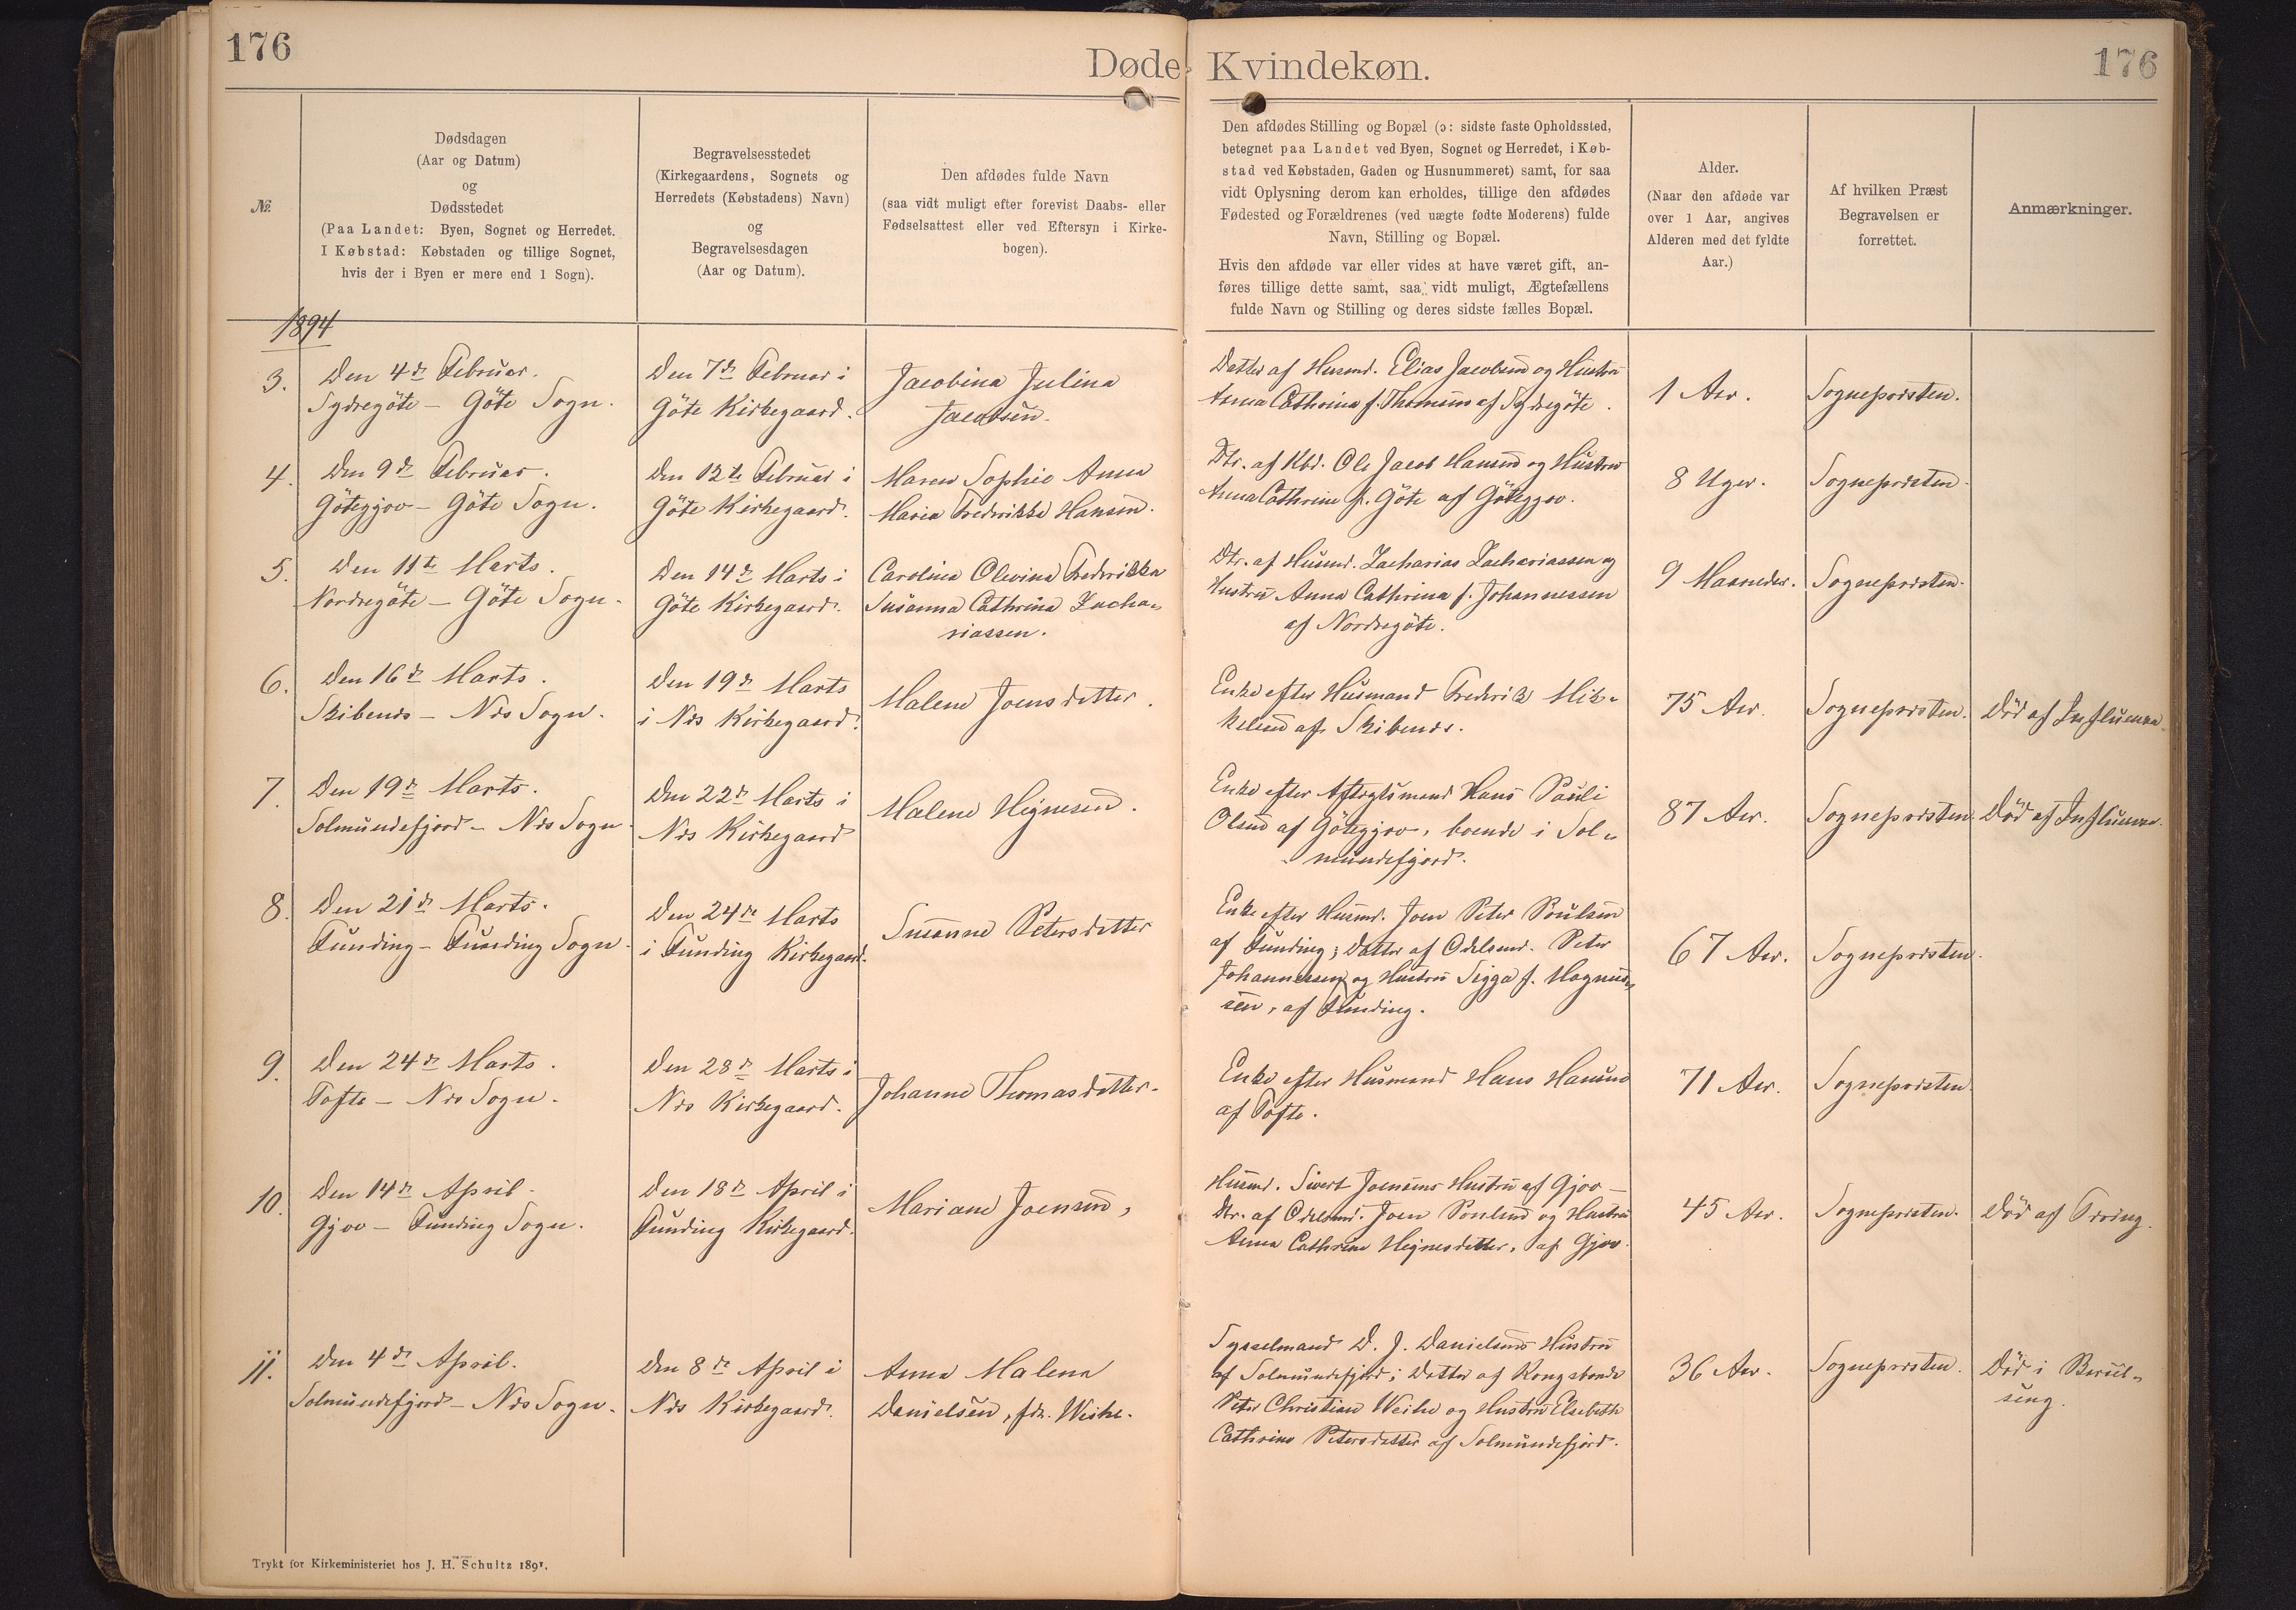 176
Døde
Kvindekøn.
176
№
Dødsdagen
(Aar og Datum)
og
Dødsstedet
(Paa Landet: Byen, Sognet og Herredet.
I Købstad: Købstaden og tillige Sognet,
hvis der i Byen er mere end 1 Sogn).
Begravelsesstedet
(Kirkegaardens, Sognets og
Herredets (Købstadens) Navn)
og
Begravelsesdagen
(Aar og Datum).
Den afdødes fulde Navn
(saa vidt muligt efter forevist Daabs- eller
Fødselsattest eller ved Eftersyn i Kirke-
bogen).
Den afdødes Stilling og Bopæl (ɔ: sidste faste Opholdssted,
betegnet paa Landet ved Byen, Sognet og Herredet, i Køb-
stad ved Købstaden, Gaden og Husnummeret) samt, for saa
vidt Oplysning derom kan erholdes, tillige den afdødes
Fødested og Forældrenes (ved uægte fødte Moderens) fulde
Navn, Stilling og Bopæl.
Hvis den afdøde var eller vides at have været gift, an-
føres tillige dette samt, saa vidt muligt, Ægtefællens
fulde Navn og Stilling og deres sidste fælles Bopæl.
Alder.
(Naar den afdøde var
over 1 Aar, angives
Alderen med det fyldte
Aar.)
Af hvilken Præst
Begravelsen er
forrettet.
Anmærkninger.
1894
3.
Den 4de Februar.
Sydregöte – Göte Sogn.
Den 7de Februar i
Göte Kirkegaard.
Jacobina Julina
Jacobsen.
Datter af Husmd. Elias Jacobsen og Hustru
Anna Cathrina f. Thomsen af Sydregöte.
1 Aar.
Sognepræsten.
4.
Den 9de Februar.
Götegjov – Göte Sogn.
Den 12te Februar i
Göte Kirkegaard.
Maren Sophie Anna
Maria Fredrikke Hansen.
Dtr. af Kbd. Ole Jacob Hansen og Hustru
Anna Cathrine f. Göte af Götegjov.
8 Uger.
Sognepræsten.
5.
Den 11te Marts.
Nordregöte – Göte Sogn.
Den 14de Marts i
Göte Kirkegaard.
Carolina Olevina Frederikka
Susanna Cathrina Zacha-
riassen.
Dtr. af Husmd. Zacharias Zachariassen og
Hustru Anna Cathrina f. Johannessen
af Nordregöte.
9 Maaneder.
Sognepræsten.
6.
Den 16de Marts.
Skibenæs – Næs Sogn.
Den 19de Marts
i Næs Kirkegaard.
Malene Joensdatter.
Enke efter Husmand Frederik Mik-
kelsen af Skibenæs.
75 Aar.
Sognepræsten.
Död af Influenza.
7.
Den 19de Marts.
Solmundefjord – Næs Sogn
Den 22de Marts i
Næs Kirkegaard
Malene Hejnesen.
Enke efter Aftægtsmand Hans Pauli
Olsen af Götegjov, boende i Sol-
mundefjord.
87 Aar.
Sognepræsten
Död af Influenza.
8.
Den 21de Marts.
Funding – Funding Sogn.
Den 24de Marts
i Funding Kirkegaard.
Susanne Petersdatter
Enke efter Husmd. Joen Peter Poulsen
af Funding; Datter af Odelsmd. Peter
Johannessen og Hustru Sigga f. Magnus-
sen, af Funding.
67 Aar.
Sognepræsten.
9.
Den 24de Marts.
Tofte – Næs Sogn.
Den 28de Marts i
Næs Kirkegaard.
Johanne Thomasdatter.
Enke efter Husmand Hans Hansen
af Tofte.
71 Aar.
Sognepræsten.
10.
Den 14de April.
Gjov – Funding Sogn.
Den 18de April i
Funding Kirkegaard.
Mariane Joensen,
Husmd. Sivert Joensens Hustru af Gjov –
Dtr. af Odelsmd. Joen Poulsen og Hustru
Anna Cathrine Hejnesdatter, af Gjov.
45 Aar.
Sognepræsten.
Död af Tæring.
11.
Den 4de April.
Solmundefjord – Næs Sogn.
Den 8de April i
Næs Kirkegaard.
Anna Malena
Danielsen, fdt. Weihe.
Sysselmand D. J. Danielsens Hustru
af Solmundefjord; Datter af Kongsbonde
Peter Christian Weihe og Hustru Elsebeth
Cathrine Petersdatter af Solmundefjord.
36 Aar.
Sognepræsten.
Död i Barsel-
seng.
Trykt for Kirkeministeriet hos J. H. Schultz 1891.